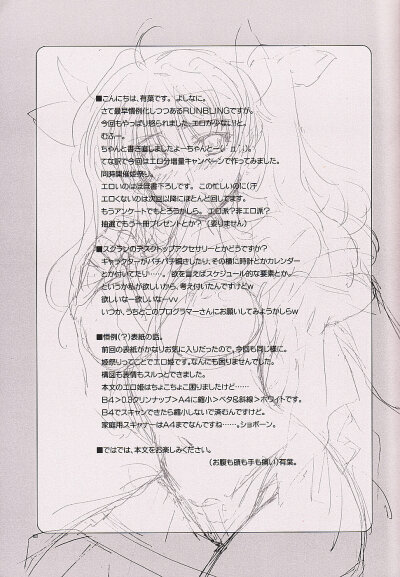 ■こんにちは、有葉です。よしなに。
さて最早慣例化しつつあるRUNBLINGですが、
今回もやっぱり怒られました、エロが少ない!と。
むふー。
ちゃんと書き直しましたよーちゃんとー
てな訳で今回はエロ分増量キャンペーンで作ってみました。
同時開催姫祭り。
エロいのはほぼ書下ろしです。この忙しいのに(汗
エロくないのは次回以降にほとんど回してます。
もうアンケートでもとろうかしら。エロ派?非エロ派?
抽選でもう一冊プレゼントとか?(要りません)
■スクランのデスクトップアクセサリーとかどうですか?
キャラクターがパチパチ瞬きしたり、その横に時計とかカレンダー
とか付いてたり……。欲を言えばスケジュール的な要素とか。
というか私が欲しいから、考え付いたんですけどw
欲しいなー欲しいなーvv
いつか、うちとこのプログラマーさんにお願いしてみようかしらw
■慣例(?)表紙の話。
前回の表紙がかなりお気に入りだったので、今回も同じ様に。
姫祭りってことでエロ姫です。なんにも困りませんでした。
構図も表情もスルっとできました。
本文のエロ姫はちょこちょこ困りましたけど……
B4>0.3クリンナップ>A4に縮小>ベタ&斜線>ホワイトです。
B4でスキャンできたら縮小しないで済むんですけど。
家庭用スキャナーはA4までなんですね……。ショボーン。
■ではでは、本文をお楽しみください。
(お腹も頭も手も痛い)有葉。